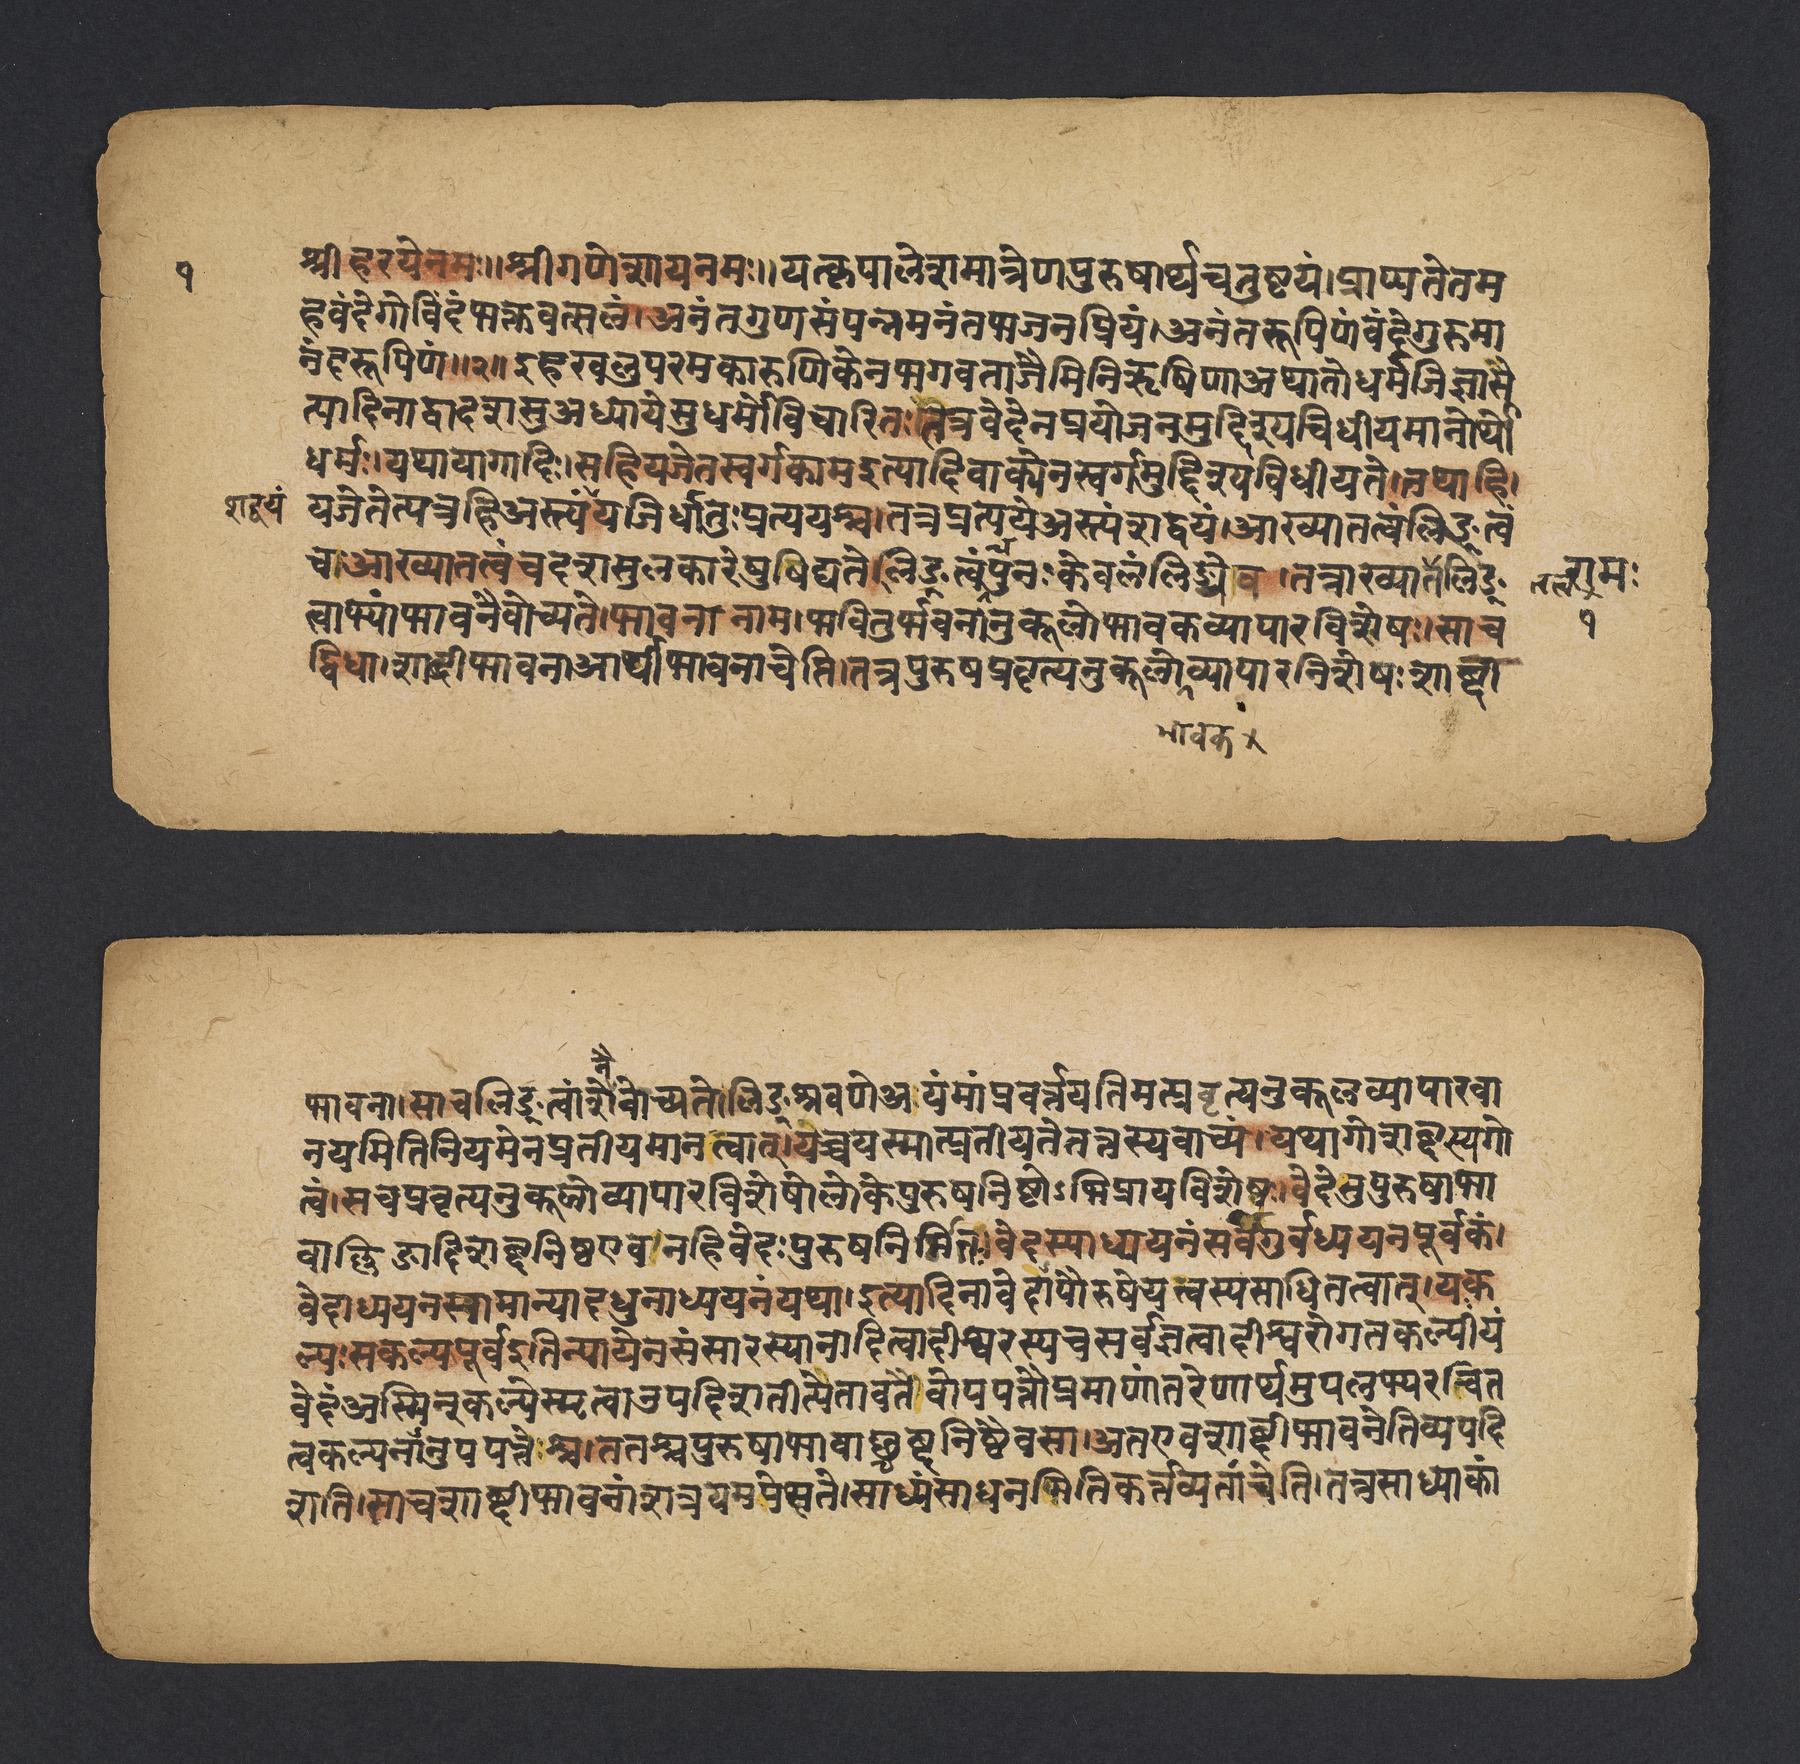 १
श्रीहरयेनमः॥श्रीगणेशायनमः॥यत्कृपालेशमात्रेणपुरुषार्थचतुष्टयं।प्राप्यतेतम
हंवंदेगोविंदंभक्तवत्सलं।अनंतगुणसंपन्नमनंतभजनप्रियं।अनंतरूपिणंवंदेगुरुमा
नंदरूपिणं॥२॥इहखलुपरमकारुणिकेनभगवताजैमिनिऋषिणाअथातोधर्मजिज्ञासे
त्यादिनाद्वादशसुअध्यायेसुधर्मोविचारितः।तत्रवेदेनप्रयोजनमुद्दिश्यविधीयमानोर्थो
धर्मः।यथायागादिः।सहियजेतस्वर्गकामइत्यादिवाक्येनस्वर्गमुद्दिश्यविधीयते।तथाहि।
यजेतेत्यत्रहिअस्त्यंयजिर्धातुःप्रत्ययश्च।तत्रप्रत्ययेअस्त्यंशद्वयं।आख्यातत्वंलिङ्त्वं
शद्वयं
च।आख्यातत्वंचदशसुलकारेषुविद्यते।लिङ्त्वंपुनःकेवलंलिङ्येव।तत्राख्यातलिङ्
रामः
त्वाभ्यांभावनैवोच्यते।भावनानाम।भवितुर्भवनानुकूलोभावकव्यापारविशेषः।साच
१
द्विधा।शाब्दीभावनाआर्थीभावनाचेति।तत्रपुरुषप्रवृत्यनुकूलोव्यापारविशेषःशाब्दी
भावक
भावना।साचलिङ्त्वांशेनैवोच्यते।लिङ्श्रवणेअयंमांप्रवर्त्तयतिमत्प्रवृत्यनुकूलव्यापारवा
नयमितिनियमेनप्रतीयमानत्वात्।यच्चयस्मात्प्रतीयतेतत्तस्यवाच्यं।यथागोशब्दस्यगो
त्वं।सचप्रवृत्यनुकूलोव्यापारविशेषोलोकेपुरुषनिष्टोऽभिप्रायविशेषः।वेदेतुपुरुषाभा
वाल्लिङादिशब्दनिष्ठएव।नहिवेदःपुरुषनिर्मितः।वेदस्याध्ययनंसर्वंगुर्वध्ययनपूर्वकं।
वेदाध्ययनसामान्यादधुनाध्ययनंयथा।इत्यादिनावेदापौरुषेयत्वस्यसाधितत्वात्।यःक
ल्पःसकल्पपूर्वइतिन्यायेनसंसारस्यानादित्वादीश्वरस्यचसर्वज्ञत्वादीश्वरोगतकल्पीयं
वेदंअस्मिन्कल्पेस्मृत्वाउपदिशतीत्येतावतैवोपपत्तौप्रमाणांतरेणार्थमुपलभ्यरचित
त्वकल्पनानुपपत्तेश्च।ततश्चपुरुषाभावाच्छब्दनिष्ठैवसा।अतएवशाब्दीभावनेतिव्यपदि
शति।साचशाब्दीभावनांशत्रयमपेक्षते।साध्यंसाधनमितिकर्त्तव्यतांचेति।तत्रसाध्याकां